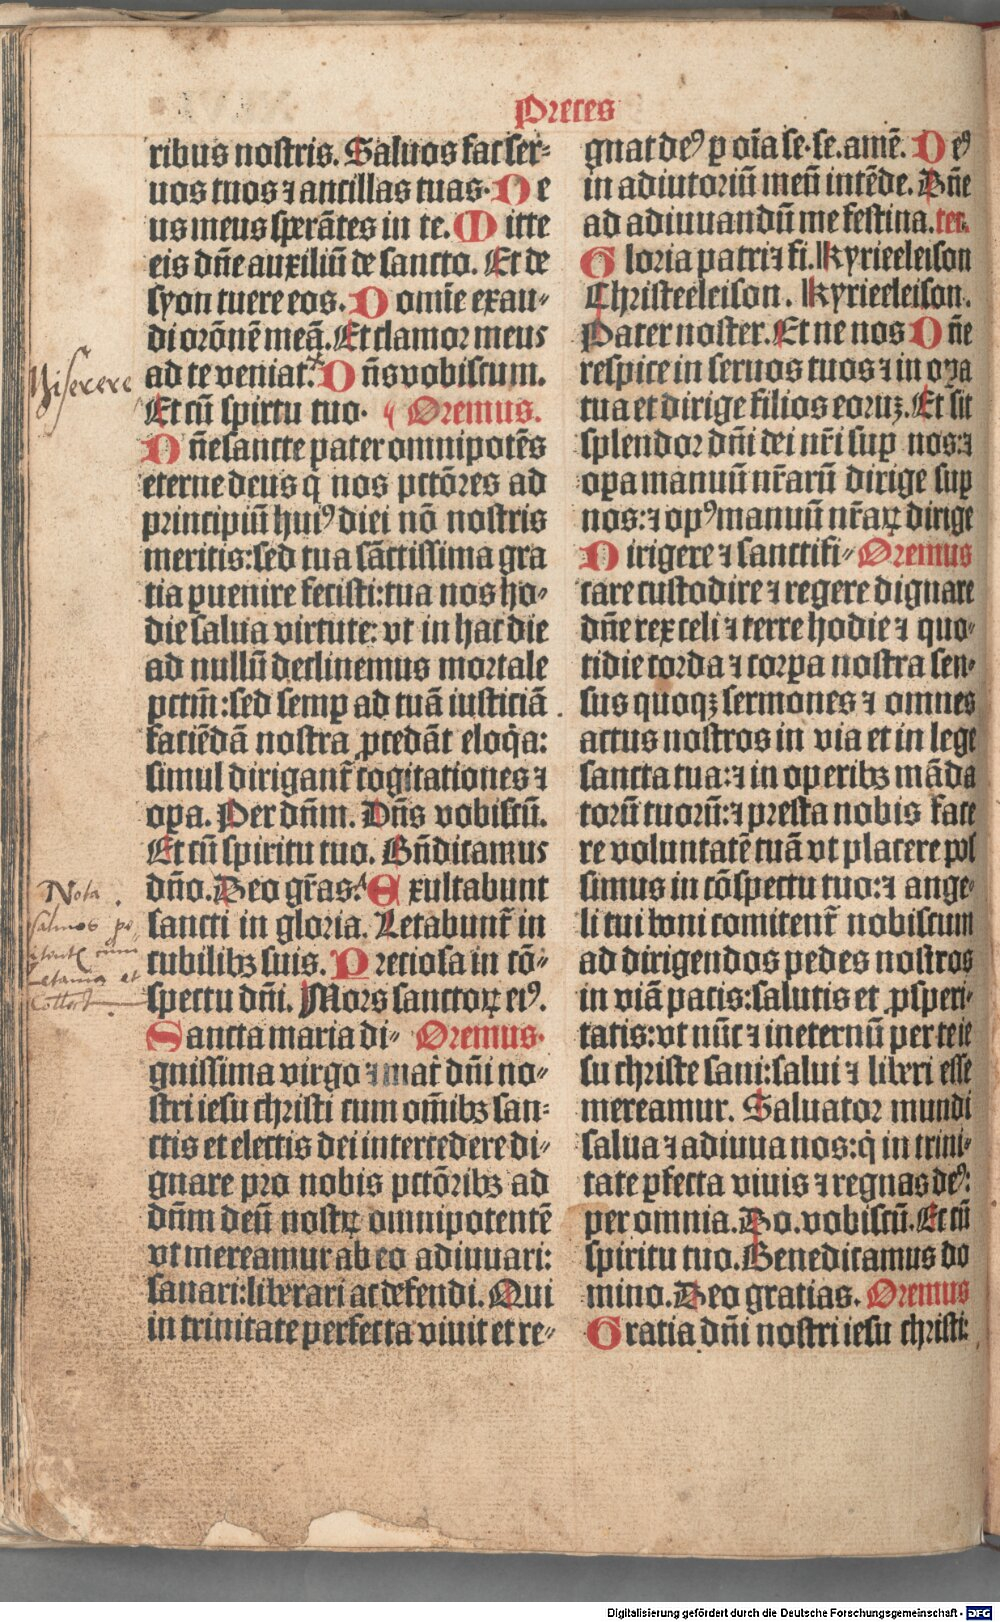 Preces
ribus nostris. Saluos fac ser⸗
uos tuos ⁊ ancillas tuas. De
us meus sperātes in te. Mitte
eis dn̄e auxiliū de sancto. Et de
syon tuere eos. Domīe exau⸗
di orōnē meā. Et clamor meus
ad te veniat. Dn̄s vobiscum.
Et cū spirtu tuo. Oremus.
Dn̄e sancte pater omnipotēs
eterne deus q̄ nos pctōres ad
principiū huiꝰ diei nō nostris
meritis: sed tua sāctissima gra
tia p̄uenire fecisti: tua nos ho⸗
die salua virtute: vt in hac die
ad nullū declinemus mortale
pctm̄: sed semꝑ ad tuā iusticiā
faciēdā nostra ꝓcedāt eloq̄a:
simul dirigant᷑ cogitationes ⁊
oꝑa. Per dn̄m. Dn̄s vobiscū.
Et cū spiritu tuo. Bn̄dicamus
dn̄o. Deo gr̄as. Exultabunt
sancti in gloria. Letabunt᷑ in
cubilibꝫ suis. Preciosa in cō⸗
spectu dn̄i. Mors sanctoꝝ eiꝰ.
Sancta maria di⸗ Oremus.
gnissima virgo ⁊ mat̄ dn̄i no⸗
stri iesu christi cum om̄ibꝫ san⸗
ctis et electis dei intercedere di⸗
gnare pro nobis pctōribꝫ ad
dn̄m deū nostꝝ omnipotentē
vt mereamur ab eo adiuuari:
sanari: liberari ac defendi. Qui
in trinitate perfecta viuit et re⸗
gnat deꝰ ꝑ oīa se. se. amē. Deꝰ
in adiutoriū meū intēde. Dn̄e
ad adiuuandū me festina. ter.
Gloria patri ⁊ fi. Kyrieeleison
Christeeleison. Kyrieeleison.
Pater noster. Et ne nos Dn̄e
respice in seruos tuos ⁊ in oꝑa
tua et dirige filios eoruꝫ. Et sit
splendor dn̄i dei nr̄i suꝑ nos: ⁊
oꝑa manuū nr̄arū dirige suꝑ
nos: ⁊ opꝰ manuū nr̄aꝝ dirige
Dirigere ⁊ sanctifi⸗ Oremus
care custodire ⁊ regere dignare
dn̄e rex celi ⁊ terre hodie ⁊ quo⸗
tidie corda ⁊ corꝑa nostra sen⸗
sus quoqꝫ sermones ⁊ omnes
actus nostros in via et in lege
sancta tua: ⁊ in operibꝫ māda
torū tuorū: ⁊ presta nobis face
re voluntatē tuā vt placere pos
simus in cōspectu tuo: ⁊ ange⸗
li tui boni comitent᷑ nobiscum
ad dirigendos pedes nostros
in viā pacis: salutis et ꝓsperi⸗
tatis: vt nūc ⁊ in eternū per te ie
su christe sani: salui ⁊ liberi esse
mereamur. Saluator mundi
salua ⁊ adiuua nos: q̄ in trini⸗
tate ꝑfecta viuis ⁊ regnas deꝰ:
per omnia. Do. vobiscū. Et cū
spiritu tuo. Benedicamus do
mino. Deo gratias. Oremus
Gratia dn̄i nostri iesu christi:
Miserere
Nota
salmos
letania et
Digitalisierung gefördert durch die Deutsche Forschungsgemeinschaft - DFG